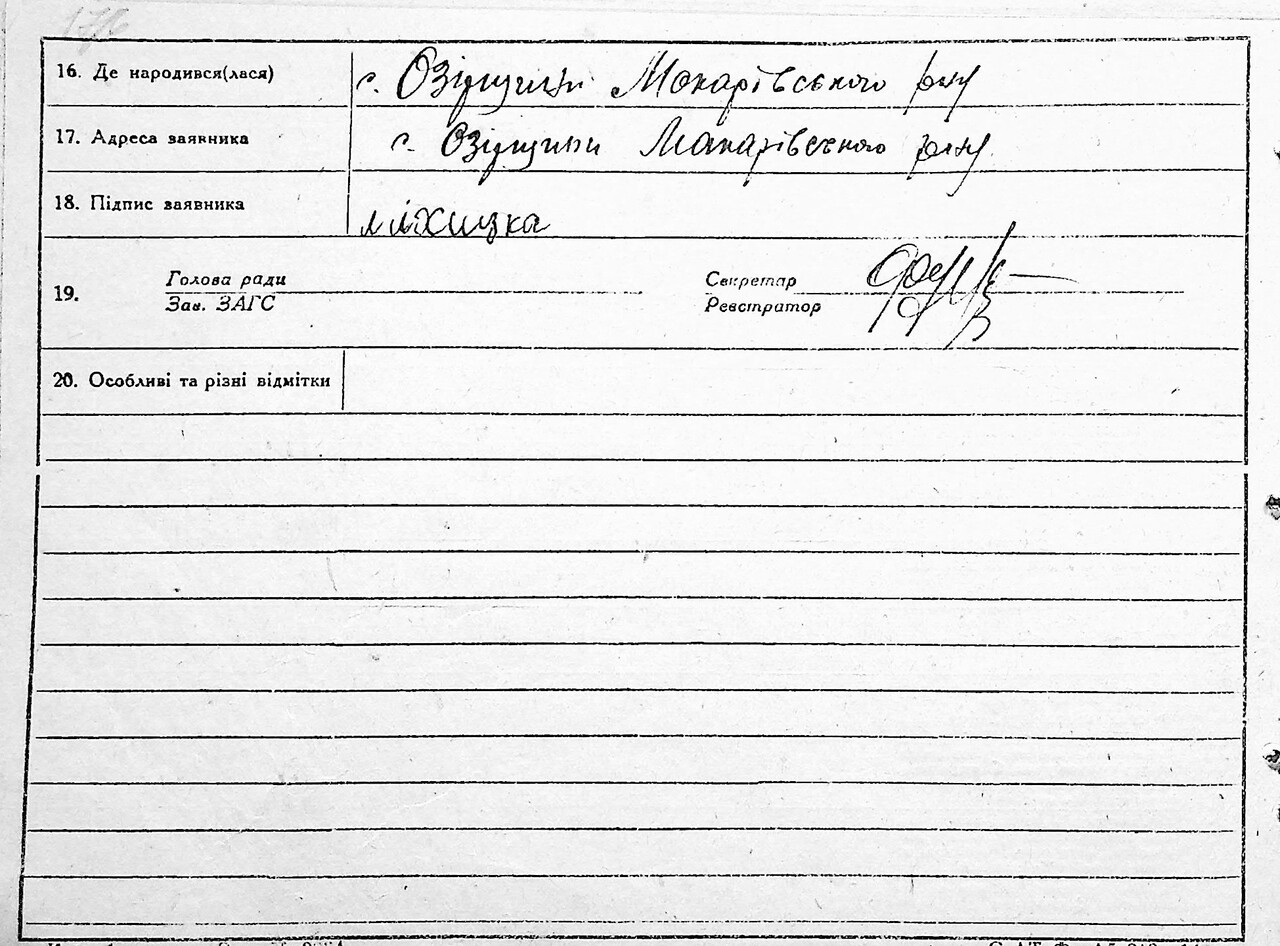 176
16. Де народився(лася) с. Озірщини Макарівського р-ну
17. Адреса заявника с. Озірщини Макарівського р-ну
18. Підпис заявника
19. Голова ради Секретар
Зав. ЗАГС Реєстратор
20. Особливі та різні відмітки